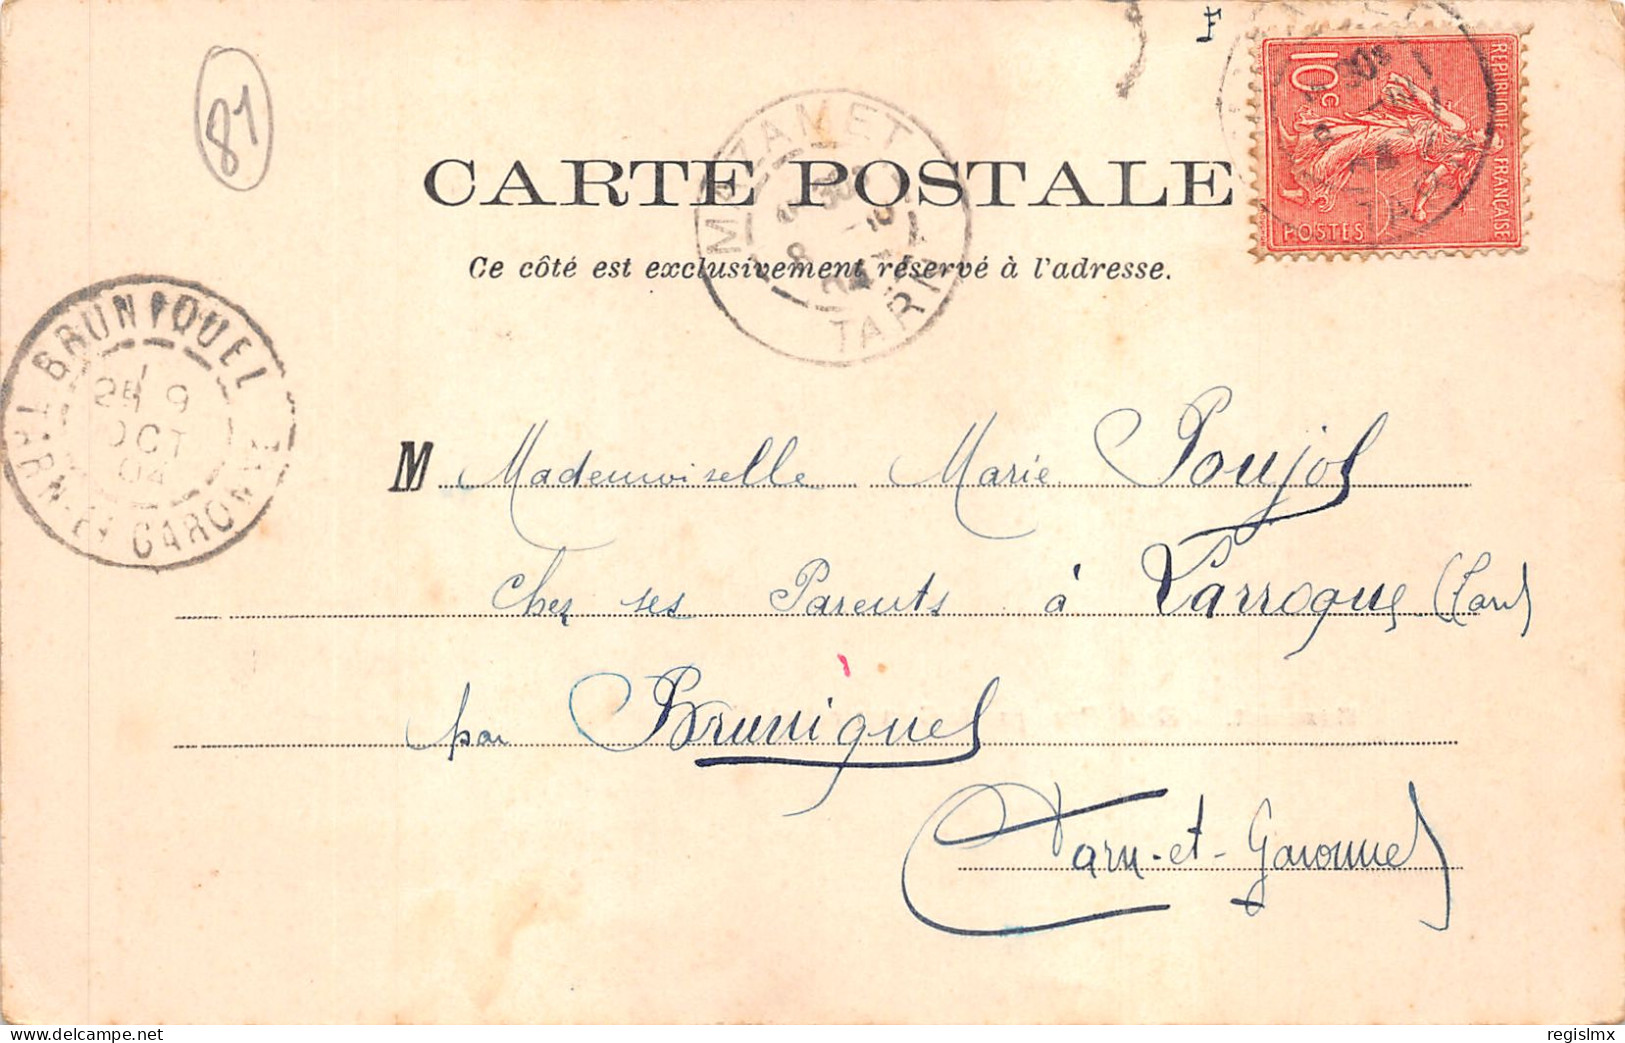 81
F
REPUBLIQUE FRANCAISE
10c
POSTES
MAZAMET
8 -10
04
TARN
CARTE POSTALE
Ce côté est exclusivement réservé à l'adresse.
BRUNIQUEL
9
OCT
04
TARN-ET-GARONNE
M Mademoiselle Marie Poujol
chez ses Parents à Larroque (Tarn)
par Bruniquel
Tarn-et-Garonne
regislmx